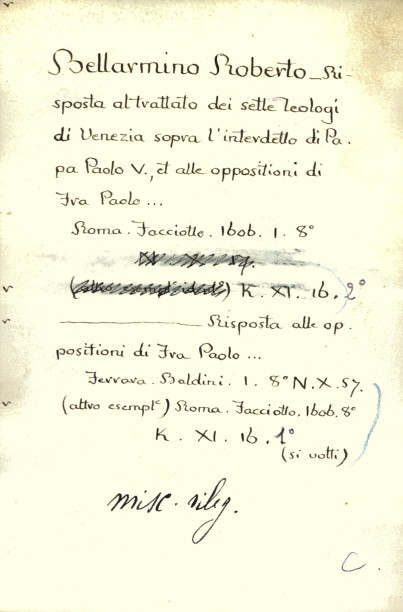 Bellarmino Roberto_Ri-
sposta al trattato dei sette teologi
di Venezia sopra l'interdetto di Pa-
pa Paolo V., et alle oppositioni di
Fra Paolo ...
Roma. Facciotto. 1606. 1. 8°
K. XI. 16. 2°
Risposta alle op-
positioni di Fra Paolo ...
Ferrara. Baldini. 1. 8° N.X.57.
(altro esempl.) Roma. Facciotto. 1606. 8°
K. XI. 16. 1°
(si volti)
misc. rileg.
C.